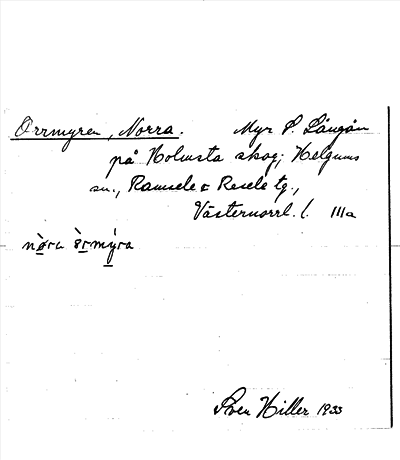 Orrmyren, Norra. Myr S. Långån
på Holmsta skog; Helgums
sn., Ramsele & Resele tg.,
Västernorrl. l. IIIa
nø̀ra òrmýra
Sven Hiller 1933